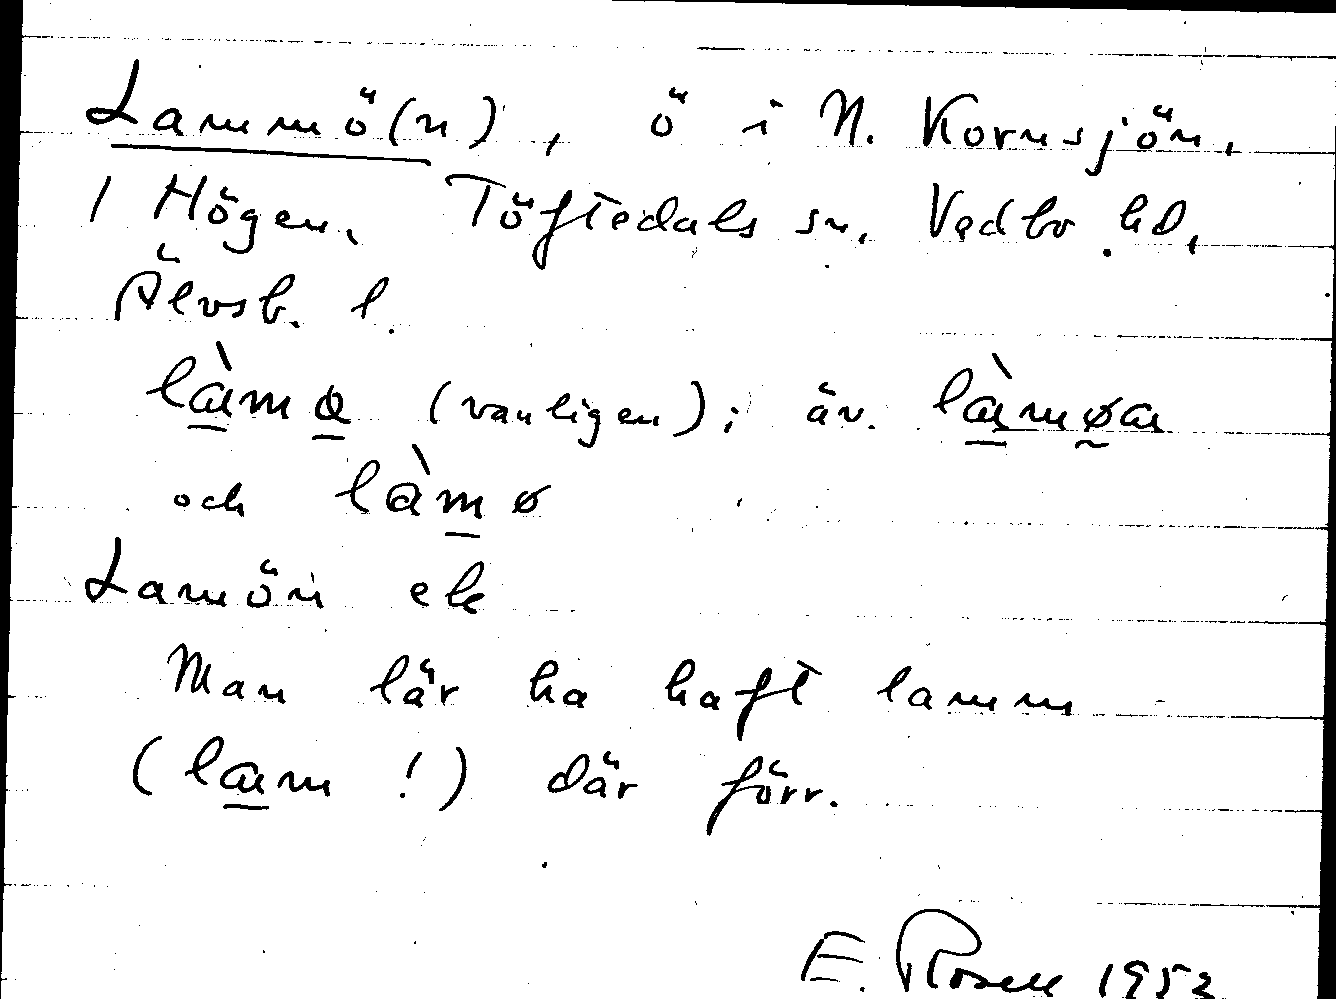 Lammö(n), ö i N. Kornsjön,
1 Högen, Töftedals sn, Vedbo hd,
Älvsb. l.
làmø (vanligen); äv. làmøa
och làmø
Lamön ek
Man lär ha haft lamm
(lam !) där förr.
E. Rosell 1953